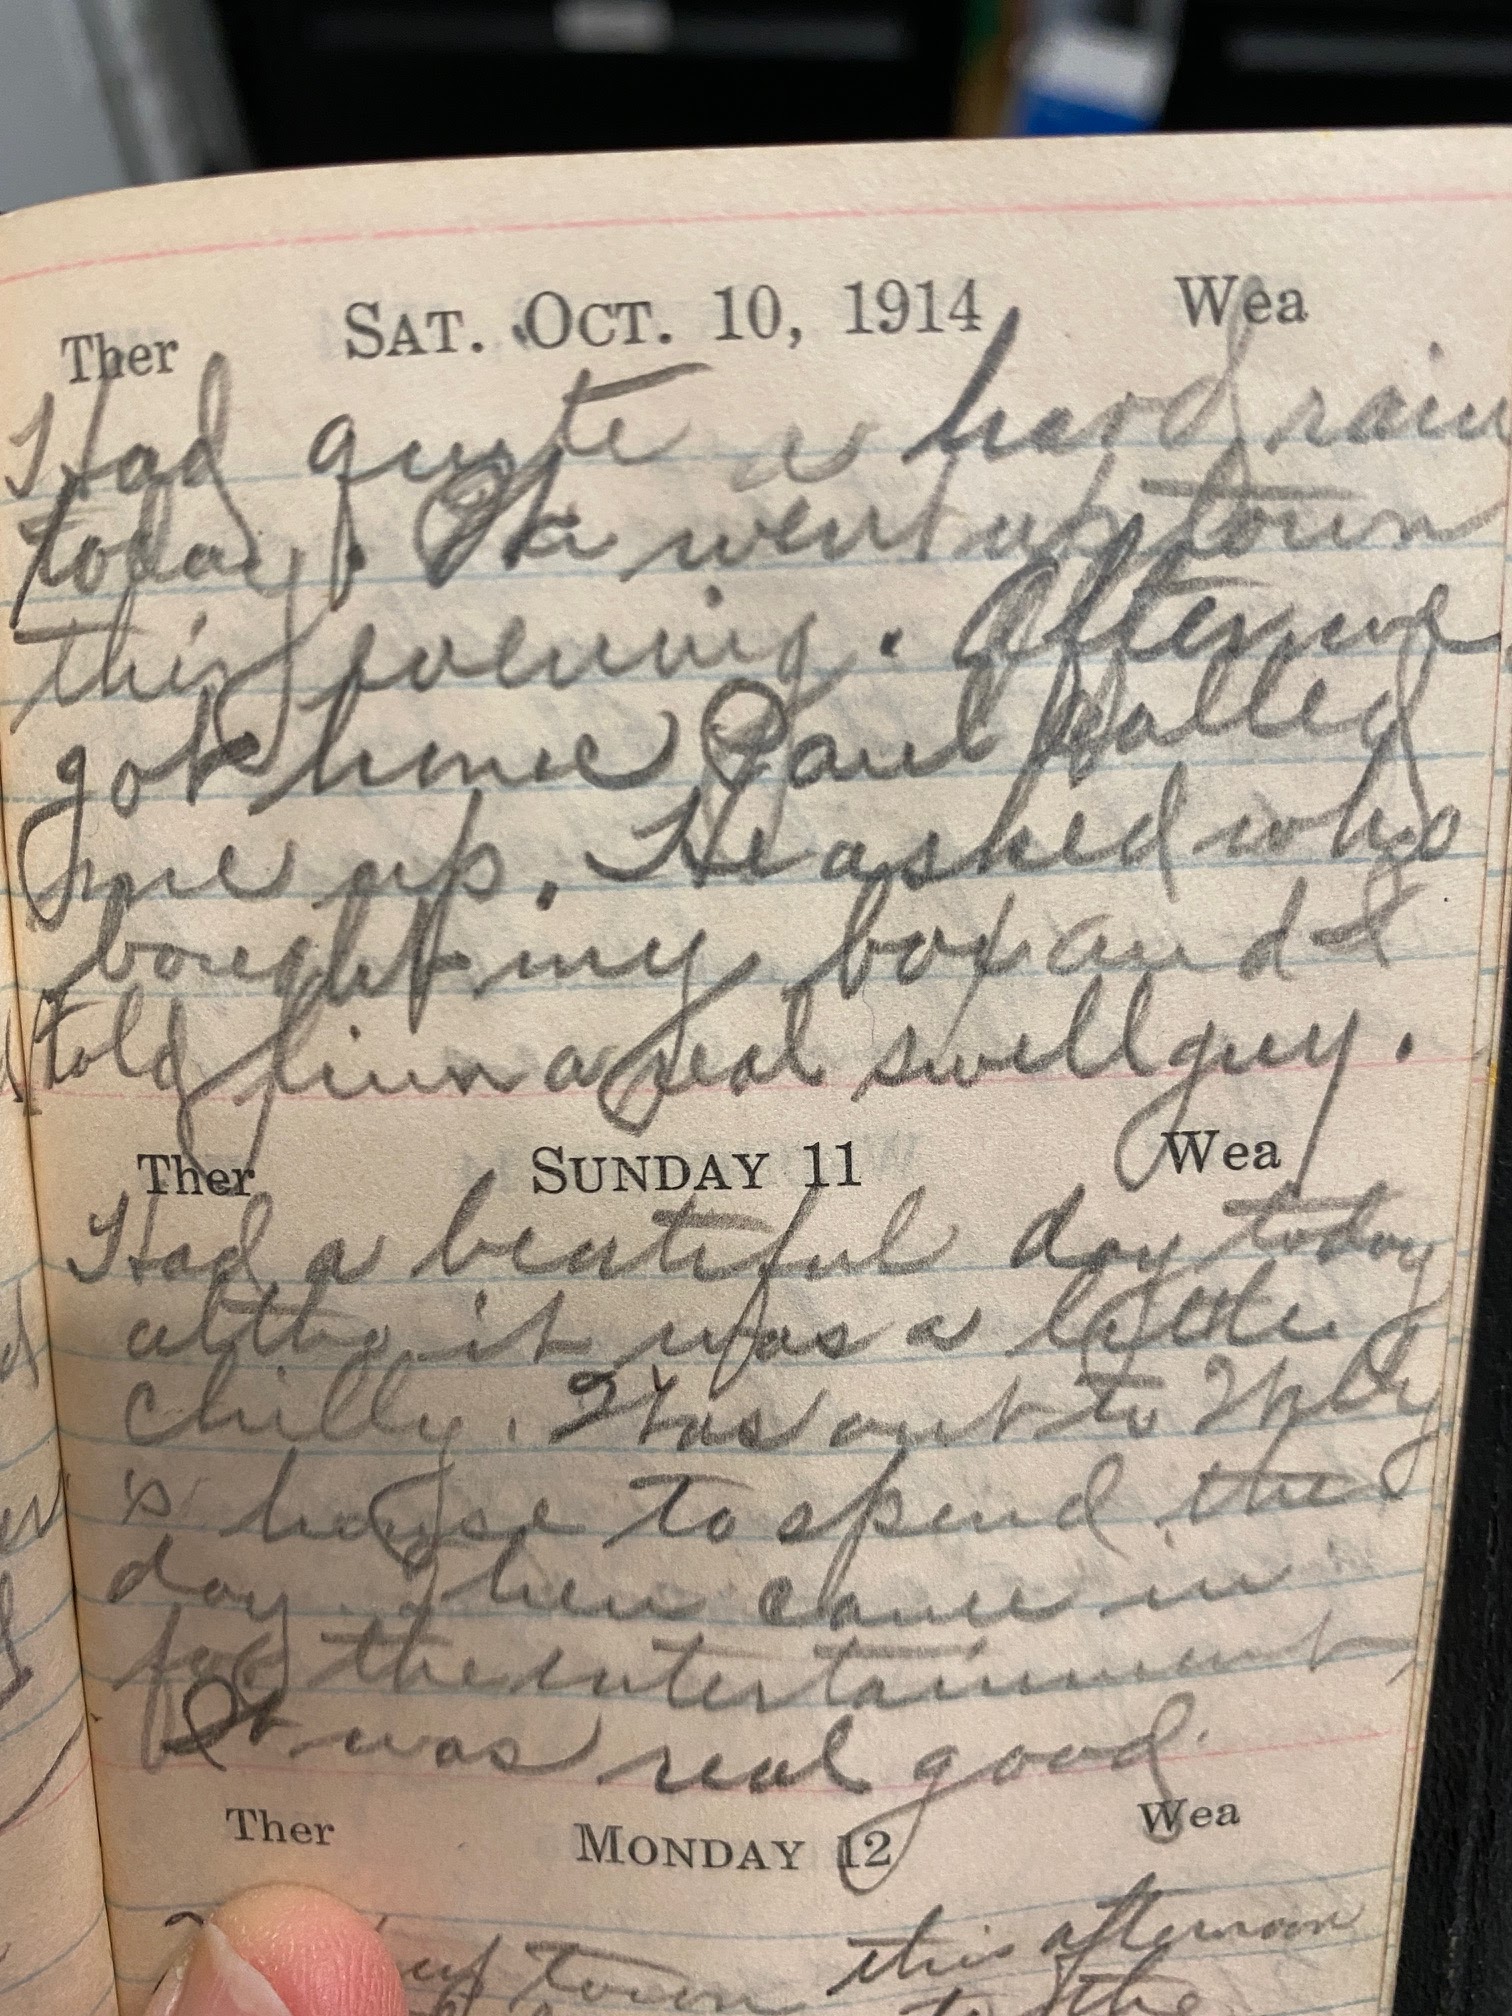 Ther SAT. OCT. 10, 1914 Wea
Had quite a hard rain
today. We went up town
this evening. After we
got home Paul called
me up. He asked who
bought my box and I
told him a real swell guy.
Ther SUNDAY 11 Wea
Had a beautiful day today
altho it was a little
chilly. Was out to
's house to spend the
day. Then came in
for the entertainment.
It was real good.
Ther MONDAY 12 Wea
up town this afternoon
to the